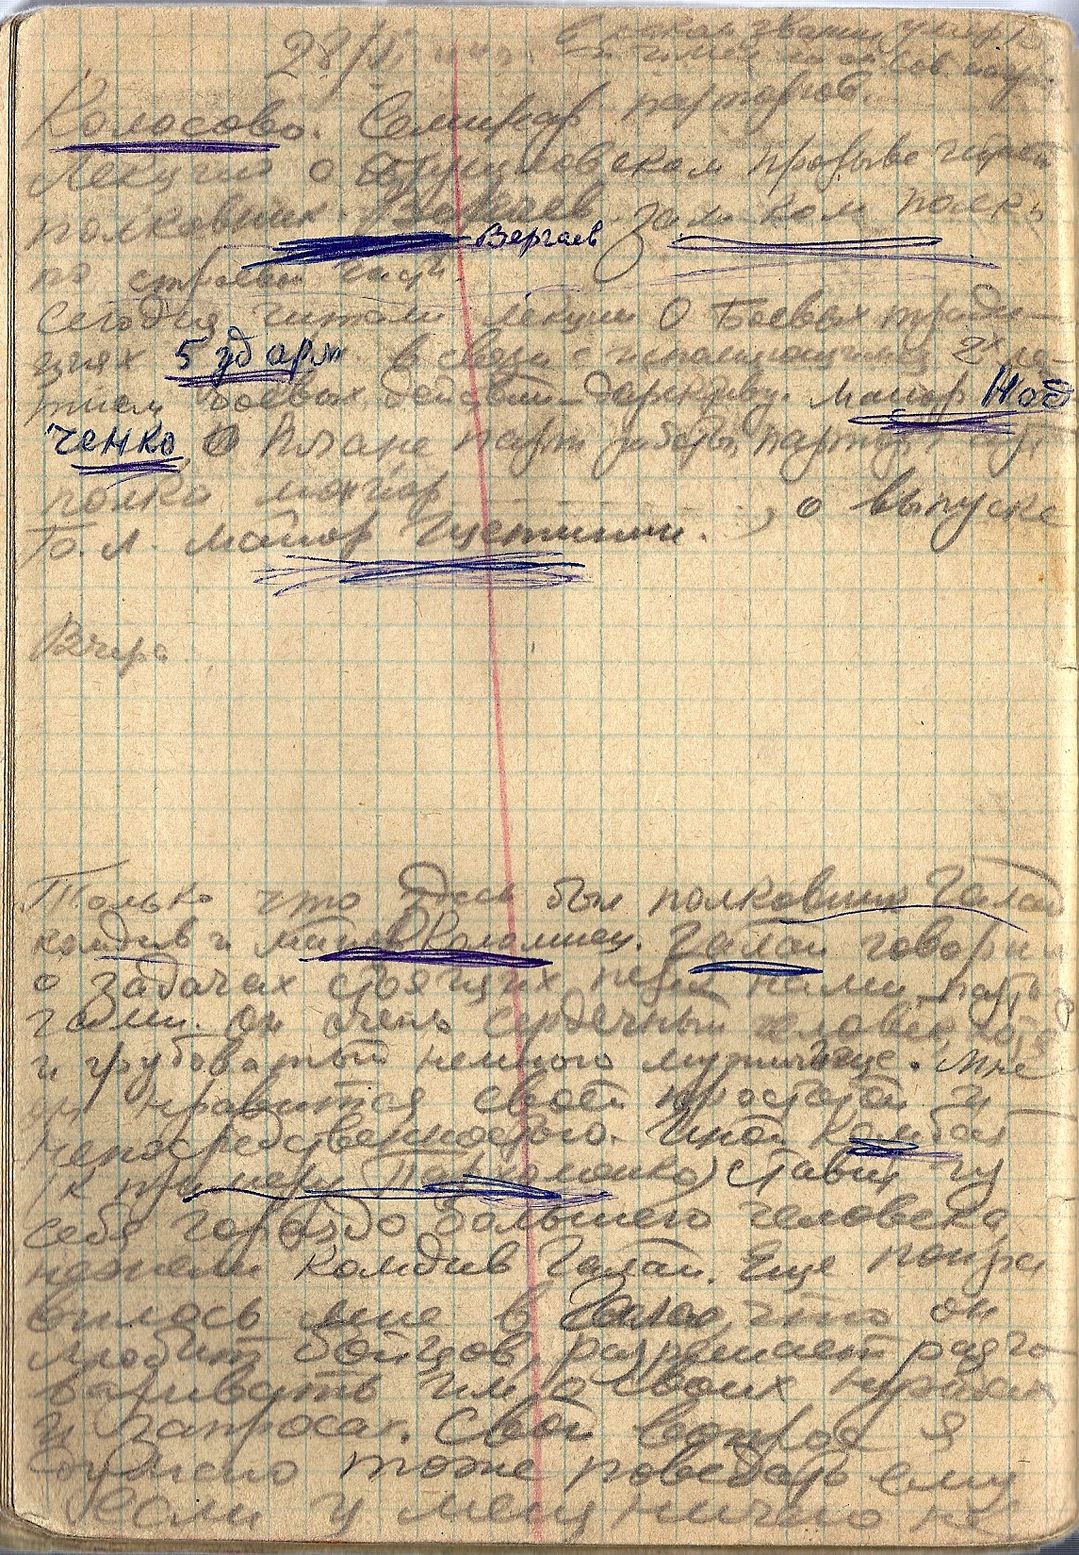 28/VI
Колосово. Семинар парторгов.
Лекции о Брусиловском прорыве читает
полковник Вергаев зам ком полка
по строевой части
Сегодня читали лекции О Боевых тради-
циях 5 ударн в связи с
боевых действ майор Ноd
ченко, О Плане парт работы парторга
полка майор , о выпуске
Б. Л. майор
Вчера
Только что здесь был полковник Галай
комдив и майор Коломиец. Галай говорил
о задачах стоящих перед нами, партор
гами. Он очень сердечный человек, хотя
и грубоватый немного мужичище. Мне
он нравится своей простотой и
непосредственностью. Иной Комбат
(к примеру Пархоменко) ставит из
себя гораздо большего человека,
нежели Комдив Галай. Еще понра
вилось мне в Галае, что он
любит бойцов, разрешает разго
варивать им о своих нуждах
и запросах. Свой вопрос я
думаю тоже поведать ему
если у меня ничего не